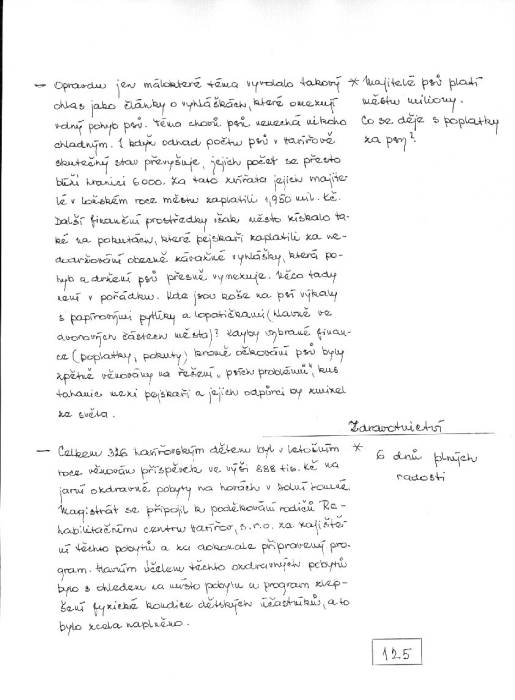 – Opravdu jen málokteré téma vyvolalo takový
ohlas jako články o vyhláškách, které omezují
volný pohyb psů. Téma chovu psů nenechá nikoho
chladným. I když odhad počtu psů v Havířově
skutečný stav převyšuje, jejich počet se přesto
blíží hranici 6000. Za tato zvířata jejich majite-
lé v loňském roce městu zaplatili 1,950 mil. Kč.
Další finanční prostředky však město získalo ta-
ké na pokutách, které pejskaři zaplatili za ne-
dodržování obecně závazné vyhlášky, která po-
hyb a držení psů přesně vymezuje. Něco tady
není v pořádku. Kde jsou koše na psí výkaly
s papírovými pytlíky a lopatičkami (hlavně ve
dvorových částech města)? Kdyby vybrané finan-
ce (poplatky, pokuty) kromě očkování psů byly
zpětně věnovány na řešení „psích problémů“, kus
tahanic mezi pejskaři a jejich odpůrci by zmizel
ze světa.
* Majitelé psů platí
městu miliony.
Co se děje s poplatky
za psy?
Zdravotnictví
– Celkem 326 havířovským dětem byl v letošním
roce věnován příspěvek ve výši 888 tis. Kč na
jarní ozdravné pobyty na horách v Dolní Lomné.
Magistrát se připojil k poděkování rodičů Re-
habilitačnímu centru Havířov, s.r.o. za zajiště-
ní těchto pobytů a za dokonale připravený pro-
gram. Hlavním účelem těchto ozdravných pobytů
bylo s ohledem na místo pobytu a program zlep-
šení fyzické kondice dětských účastníků, a to
bylo zcela naplněno.
* 6 dnů plných
radosti
125